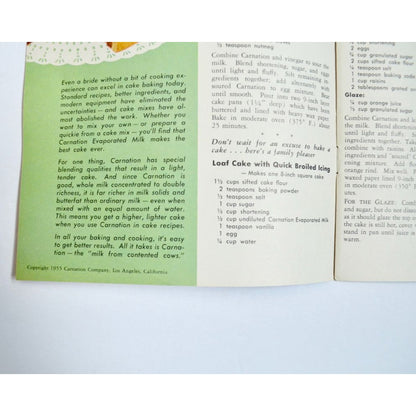 Even a bride without a bit of cooking experience can excel in cake baking today.
Standard recipes, better ingredients, and
modern equipment have eliminated the
uncertainties — and cake mixes have almost abolished the work. Whether you
want to mix your own — or prepare a
quickie from a cake mix — you'll find that
Carnation Evaporated Milk makes the
best cake ever.
For one thing, Carnation has special
blending qualities that result in a light,
tender cake. And since Carnation is
good, whole milk concentrated to double
richness, it is far richer in milk solids and
butterfat than ordinary milk — even when
mixed with an equal amount of water.
This means you get a higher, lighter cake
when you use Carnation in cake recipes.
In all your baking and cooking, it's easy
to get better results. All it takes is Carnation — the "milk from contented cows."
Copyright 1955 Carnation Company, Los Angeles, California
½ teaspoon nutmeg
Combine Carnation and vinegar to sour the
milk. Blend shortening, sugar, and eggs
until light and fluffy. Sift remaining ingredients together, add alternately with
soured Carnation to egg mixture. Beat
until smooth. Pour into two 9-inch layer
cake pans (1¼" deep) which have been
buttered and lined with heavy wax paper.
Bake in moderate oven (375° F.) about
25 minutes.
* * *
Don't wait for an excuse to bake a
cake . . . here's a family pleaser
Loaf Cake with Quick Broiled Icing
— Makes one 8-inch square cake
1½ cups sifted cake flour
2 teaspoons baking powder
½ teaspoon salt
1 cup sugar
⅓ cup shortening
½ cup undiluted Carnation Evaporated Milk
1 teaspoon vanilla
1 egg
¼ cup water
cup shortening
2 eggs
cup granulated sugar
2 cups sifted cake flour
teaspoon salt
teaspoon baking
1 teaspoon
2 cup raisins
Glaze:
¼ cup orange juice
cup granulated sugar
Combine Carnation and
milk. Blend shortening
until light and fluffy.
ingredients together. Tak